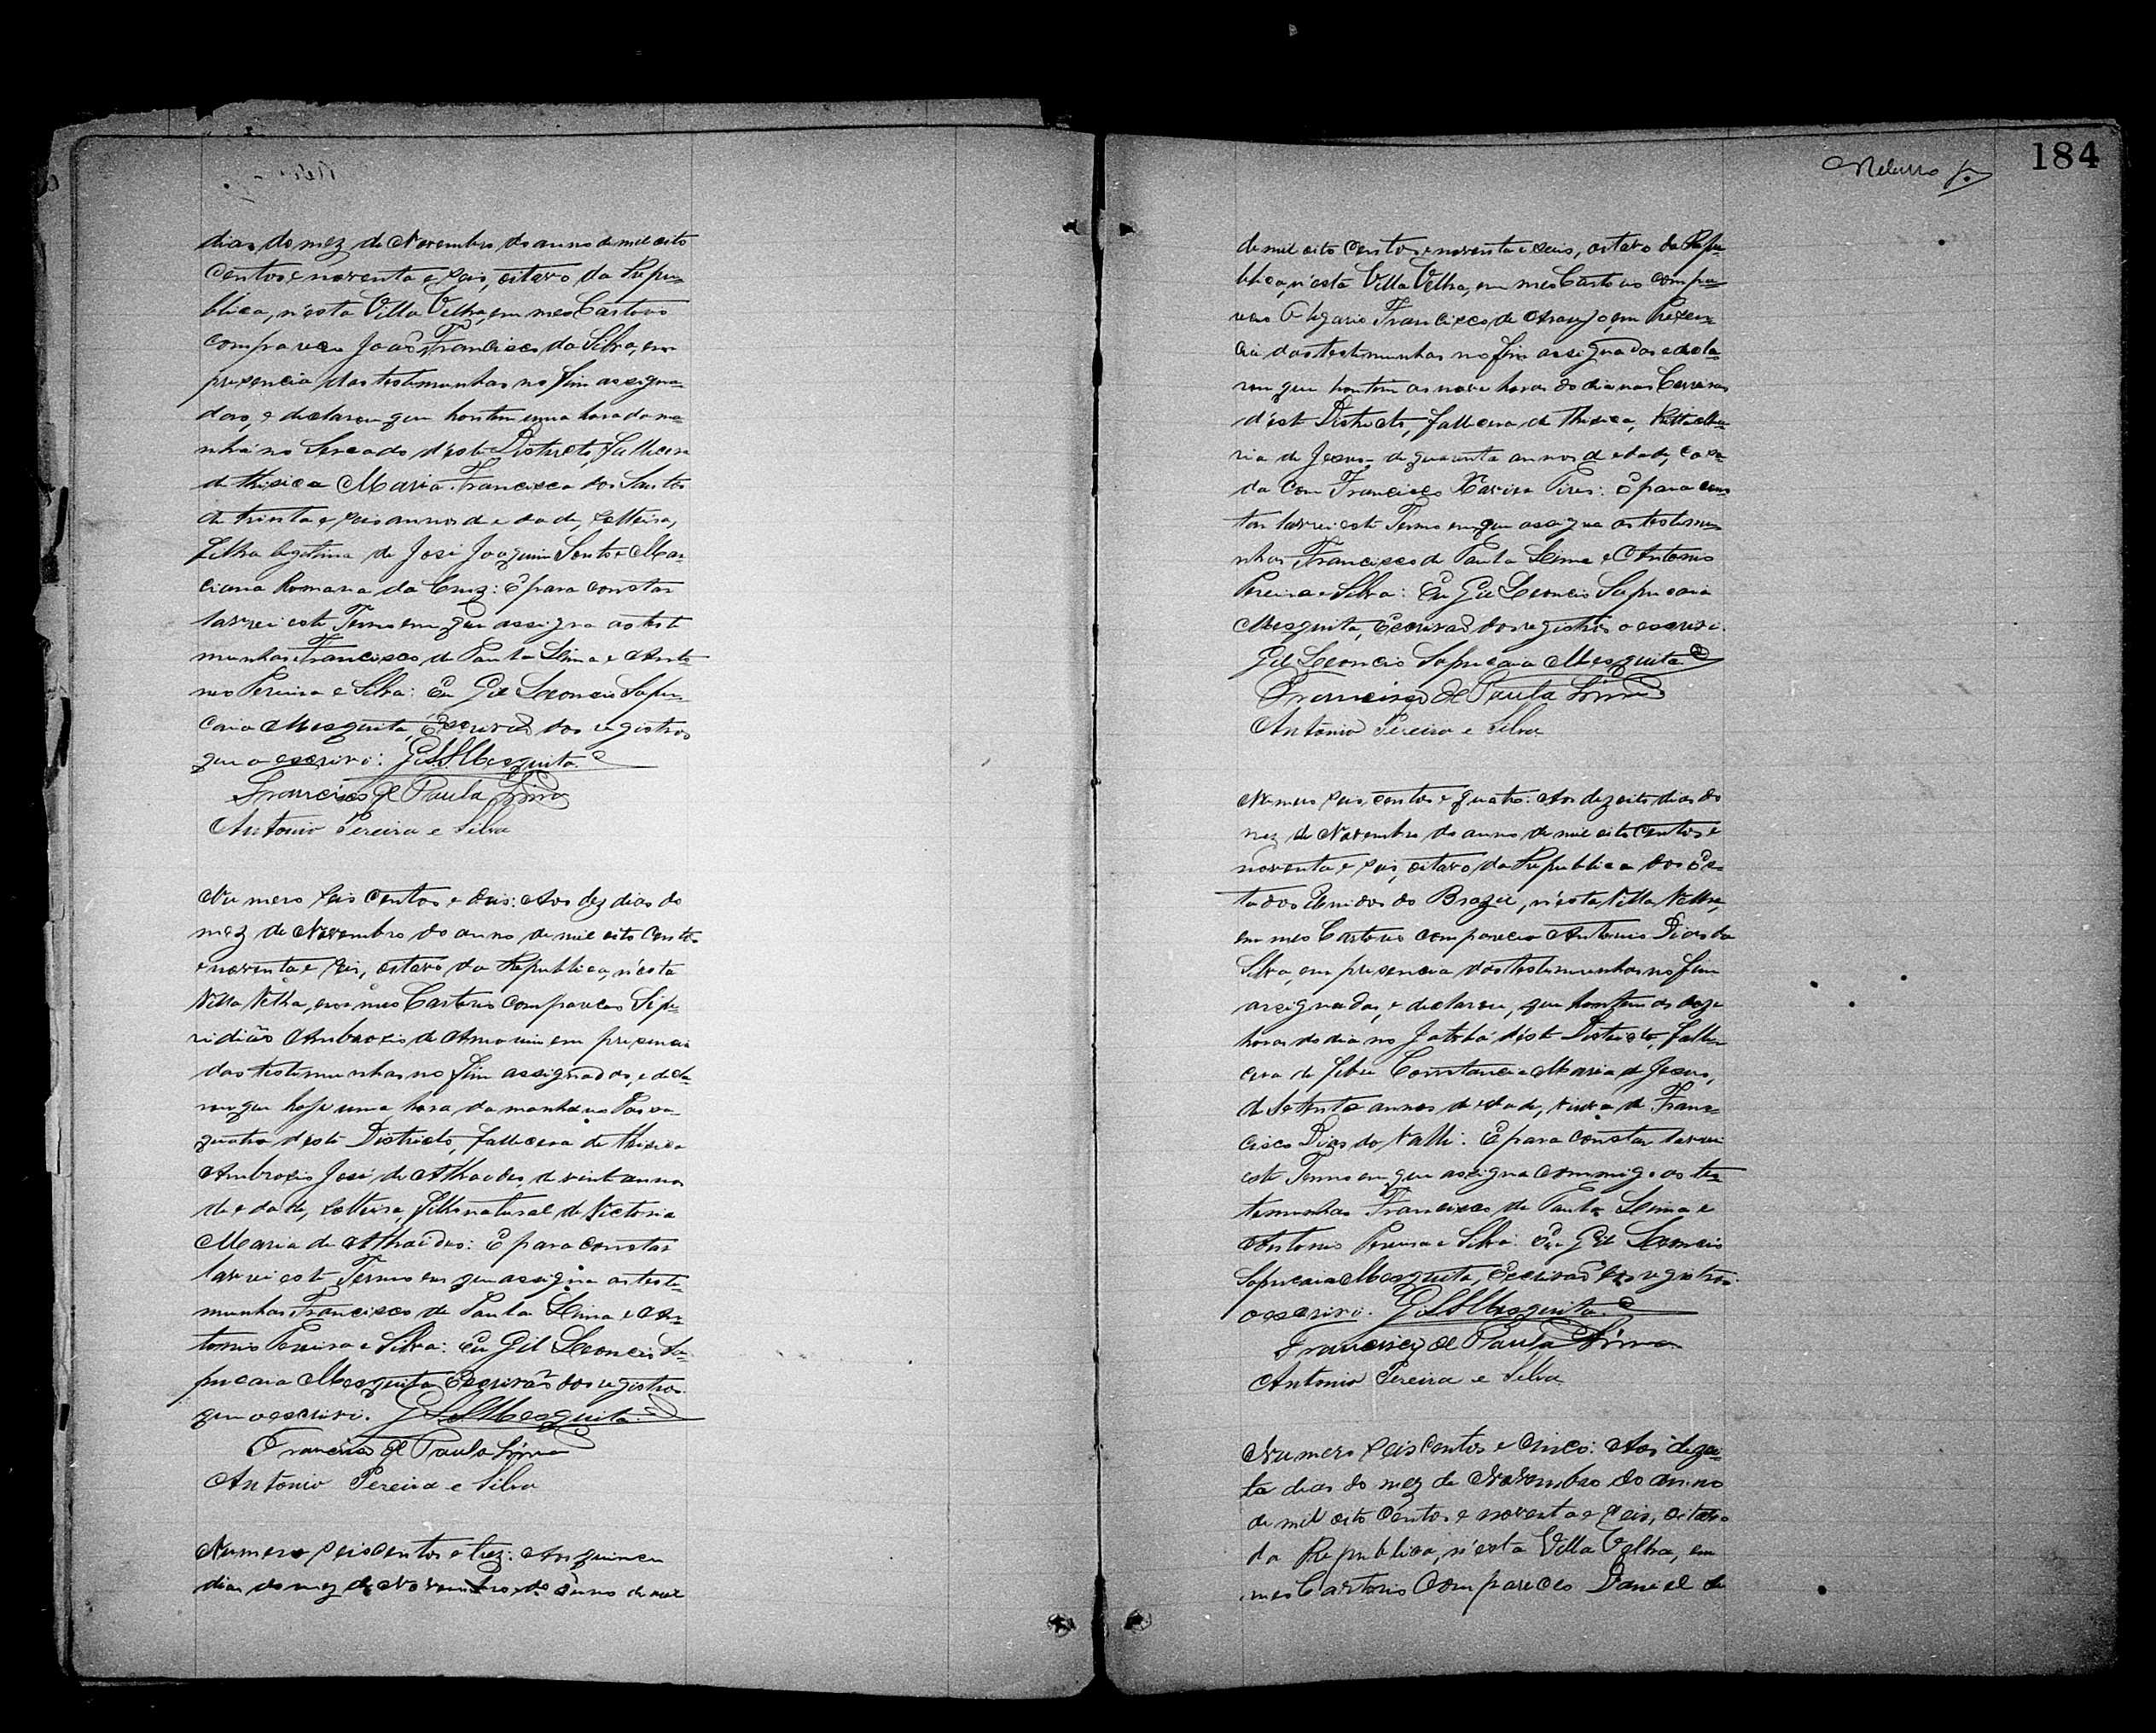 dias do mez de Novembro do anno de mil oito
centos e noventa e seis, oitavo da Repu-
blica, n'esta Villa Velha, em meo Cartorio
compareceo João Francisco da Silva, em
presencia das testemunhas no fim assigna-
das, e declarou que hontem uma hora da ma-
nhã no Sercado d'este Districto, fallecera
de thisica Maria Francisca dos Santos
de trinta e seis annos de edade, solteira,
filha legitima de José Joaquim Santos e Mar-
ciana Romana da Cruz: E para constar
lavrei este Termo em que assigna as teste-
munhas Francisco de Paula Lima e Anto-
nio Pereira e Silva: Eu Gil Leoncio Sapu-
caia Mesquita, Escrivão dos registros
que o escrivi: G L S Mesquita
Francisco de Paula Lima
Antonio Pereira e Silva
Numero seis centos e dois: Aos dez dias do
mez de Novembro do anno de mil oito centos
e noventa e seis, oitavo da Republica, n'esta
Villa Velha, em meo Cartorio compareceo Sipi-
ridião Ambrosio de Amorim em presencia
das testemunhas no fim assignadas, e decla-
rou que hoje uma hora da manhã no
d'este Districto, fallecera de thisica
Ambrosio José de Athaides, de vinte annos
de edade, solteiro, filho natural de Victoria
Maria de Athaides: E para constar
lavrei este Termo em que assigna as teste-
munhas Francisco de Paula Lima e An-
tonio Pereira e Silva: Eu Gil Leoncio Sa-
pucaia Mesquita Escrivão dos registros
que o escrivi. G L S Mesquita
Francisco de Paula Lima
Antonio Pereira e Silva
Numero seiscentos e trez: Aos quinze
dias do mez de Novembro do anno de mil
184
de mil oito centos e noventa e seis, oitavo da Repu-
blica, n'esta Villa Velha, em meo Cartorio compa-
receo Olegario Francisco de Araujo, em presen-
cia das testemunhas no fim assignadas e decla-
rou que hontem as nove horas do dia nas
d'este Districto, fallecera de thisica, Ritta Ma-
ria de Jesus, de quarenta annos de edade, casa-
da com Francisco Xavier Pires: E para cons-
tar lavrei este Termo em que assigna as testemu-
nhas Francisco de Paula Lima e Antonio
Pereira e Silva: Eu Gil Leoncio Sapucaia
Mesquita, Escrivão dos registros o escrivi.
Gil Leoncio Sapucaia Mesquita
Francisco de Paula Lima
Antonio Pereira e Silva
Numero seis centos e quatro: Aos dezoito dias do
mez de Novembro do anno de mil oito centos e
noventa e seis, oitavo da Republica dos Es-
tados Unidos do Brazil, n'esta Villa Velha,
em meo Cartorio compareceo Antonio Dias da
Silva, em presencia das testemunhas no fim
assignadas, e declarou, que hontem as doze
horas do dia no Jatobá d'este Districto, falle-
cera de febre Constancia Maria de Jesus,
de setenta annos de edade, viuva de Fran-
cisco Dias do Valli: E para constar lavrei
este Termo em que assigna commigo as tes-
temunhas Francisco de Paula Lima e
Antonio Pereira e Silva: Eu Gil Leoncio
Sapucaia Mesquita, Escrivão dos registros
o escrivi. G L S Mesquita
Francisco de Paula Lima
Antonio Pereira e Silva
Numero seiscentos e cinco: Aos dezoi-
to dias do mez de Novembro do anno
de mil oito centos e noventa e seis, oitavo
da Republica, n'esta Villa Velha, em
meo Cartorio compareceo Daniel de